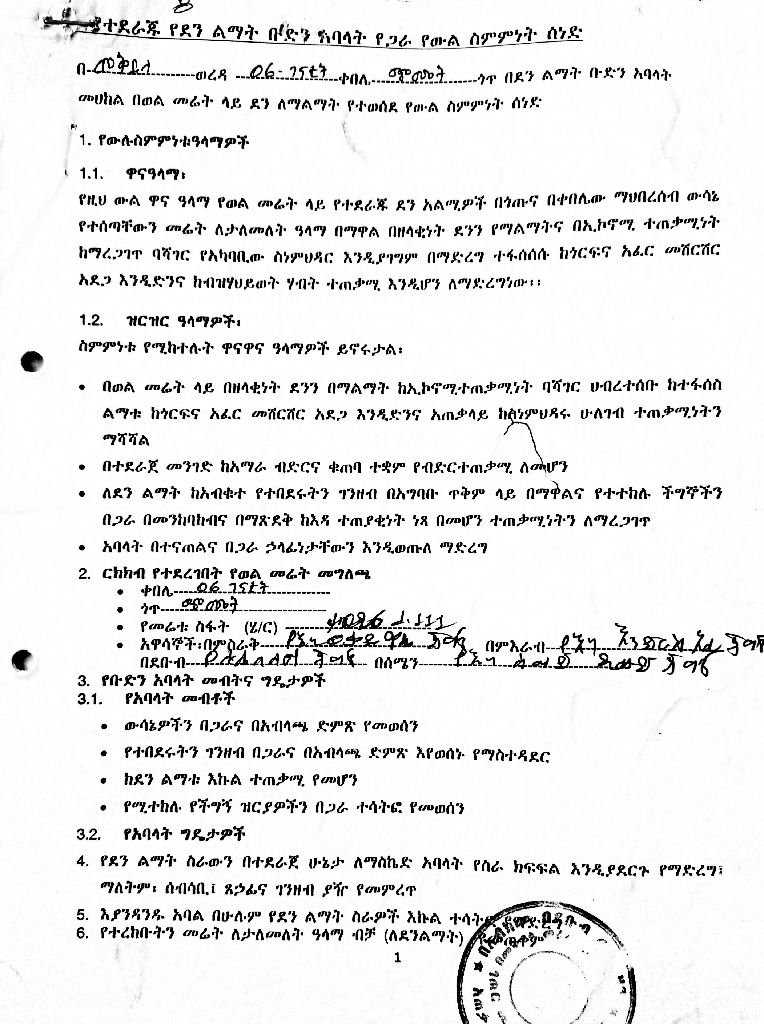 የተደራጁ የደን ልማት ቡድን አባላት የጋራ የውል ስምምነት ሰነድ
በ-መቅደላ----------ወረዳ ---06- ገናቲት-ቀበሌ---ጭሙት-----ጎጥ በደን ልማት ቡድን አባላት
መሀከል በወል መሬት ላይ ደን ለማልማት የተወሰደ የውል ስምምነት ሰነድ
1. የውሉስምምነቱዓላማዎች
1.1. ዋናዓላማ፡
የዚህ ውል ዋና ዓላማ የወል መሬት ላይ የተደራጁ ደን አልሚዎች በጎጡና በቀበሌው ማህበረሰብ ውሳኔ
የተሰጣቸውን መሬት ለታለመለት ዓላማ በማዋል በዘላቂነት ደንን የማልማትና በኢኮኖሚ ተጠቃሚነት
ከማረጋገጥ ባሻገር የአካባቢው ስነምህዳር እንዲያገግም በማድረግ ተፋሰሰሱ ከጎርፍና አፈር መሸርሸር
አደጋ እንዲድንና ከብዝሃህይወት ሃብት ተጠቃሚ እንዲሆን ለማድረግነው፡፡
1.2. ዝርዝር ዓላማዎች፡
ስምምነቱ የሚከተሉት ዋናዋና ዓላማዎች ይኖሩታል፡
• በወል መሬት ላይ በዘላቂነት ደንን በማልማት ከኢኮኖሚተጠቃሚነት ባሻገር ሀብረተሰቡ ከተፋሰስ
ልማቱ ከጎርፍና አፈር መሸርሸር አደጋ እንዲድንና አጠቃላይ ከስነምህዳሩ ሁለገብ ተጠቃሚነትን
ማሻሻል
• በተደራጀ መንገድ ከአማራ ብድርና ቁጠባ ተቋም የብድርተጠቃሚ ለመሆን
• ለደን ልማት ከአብቁተ የተበደሩትን ገንዘብ በአግባቡ ጥቅም ላይ በማዋልና የተተከሉ ችግኞችን
በጋራ በመንከባከብና በማጽደቅ ከእዳ ተጠያቂነት ነጻ በመሆን ተጠቃሚነትን ለማረጋገጥ
• አባላት በተናጠልና በጋራ ኃላፊነታቸውን እንዲወጡለ ማድረግ
2. ርክክብ የተደረገበት የወል መሬት መግለጫ
• ቀበሌ----06 ገናቲት-------------
• ጎጥ----ጭሙት----------------
• የመሬቱ ስፋት (ሄ/ር)
• አዋሳኞች፡በምስራቅ በምእራብ
በደቡብ በሰሜን
3. የቡድን አባላት መብትና ግዴታዎች
3.1. የአባላት መብቶች
• ውሳኔዎችን በጋራና በአብላጫ ድምጽ የመወሰን
• የተበደሩትን ገንዘብ በጋራና በአብላጫ ድምጽ እየወሰኑ የማስተዳደር
• ከደን ልማቱ እኩል ተጠቃሚ የመሆን
• የሚተከሉ የችግኝ ዝርያዎችን በጋራ ተሳትፎ የመወሰን
3.2. የአባላት ግዴታዎች
4. የደን ልማት ስራውን በተደራጀ ሁኔታ ለማስኬድ አባላት የስራ ክፍፍል እንዲያደርጉ የማድረግ፣
ማለትም፡ ሰብሳቢ፣ ጸኃፊና ገንዘብ ያዥ የመምረጥ
5. እያንዳንዱ አባል በሁሉም የደን ልማት ስራዎች እኩል ተሳትፎ የማድረግ
6. የተረከቡትን መሬት ለታለመለት ዓላማ ብቻ (ለደንልማት) የመጠቀም
1